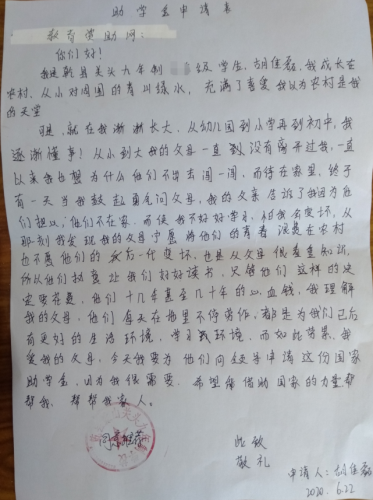 助学金申请书
教育资助网:
你们好!
我是乾县关头九年制 级学生,胡佳磊,我成长在
农村,从小对周围的青山绿水,充满了喜爱我认为农村是我
的天堂
可是,就在我渐渐长大,从幼儿园到小学再到初中,我
逐渐懂事!从小到大我的父母一直到没有离开过我,一直
以来我也想为什么他们不出去闯一闯,而待在家里,终于
有一天当我鼓起勇气问父母,我的父亲告诉了我因为他
们担心,他们不在家,而使我不好好学习,怕我会变坏,从
那刻我发现我的父母宁愿将他们的青春浪费在农村
也不愿他们的后一代变坏,也是从父母很羞查知识,
所以他们执意让我们好好读书,只够他们这样的决
定
他们十几年甚至几十年的心血钱,我理解
我的父母,他们每天在地里不停劳作,都是为我们已后
有更好的生活环境,学习环境,而如此劳累,我
爱我的父母,今天我要为他们向 申请这份国家
助学金,因为我很需要,希望能借助国家的力量帮
帮我,帮帮我家人。
同意推荐
此致
敬礼
申请人:胡佳磊
2020. 6.22